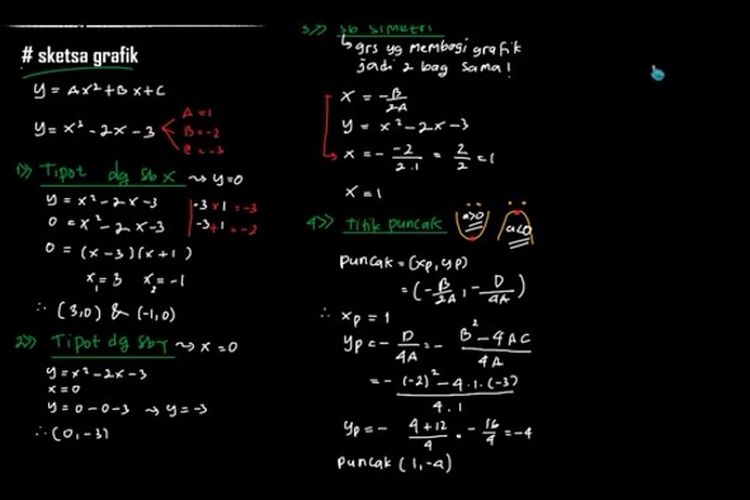 # sketsa grafik
y = Ax² + Bx + C
y = x² - 2x - 3
A = 1
B = -2
C = -3
1>> Tipot dg sb x → y = 0
y = x² - 2x - 3
0 = x² - 2x - 3
0 = (x - 3)(x + 1)
x₁ = 3 x₂ = -1
∴ (3,0) & (-1,0)
-3 × 1 = -3
-3 + 1 = -2
2>> Tipot dg sb Y → x = 0
y = x² - 2x - 3
x = 0
y = 0 - 0 - 3 → y = -3
∴ (0, -3)
3>> sb simetri
↳ grs yg membagi grafik
jadi 2 bag sama!
x = -B/2A
y = x² - 2x - 3
x = - -2/2.1 = 2/2 = 1
x = 1
4>> Titik puncak a>0 a<0
puncak = (xp, yp)
= (-B/2A, -D/4A)
∴ xp = 1
yp = - D/4A = - B² - 4AC/4A
= - (-2)² - 4.1.(-3)/4.1
yp = - 4+12/4 = - 16/4 = -4
puncak (1, -4)